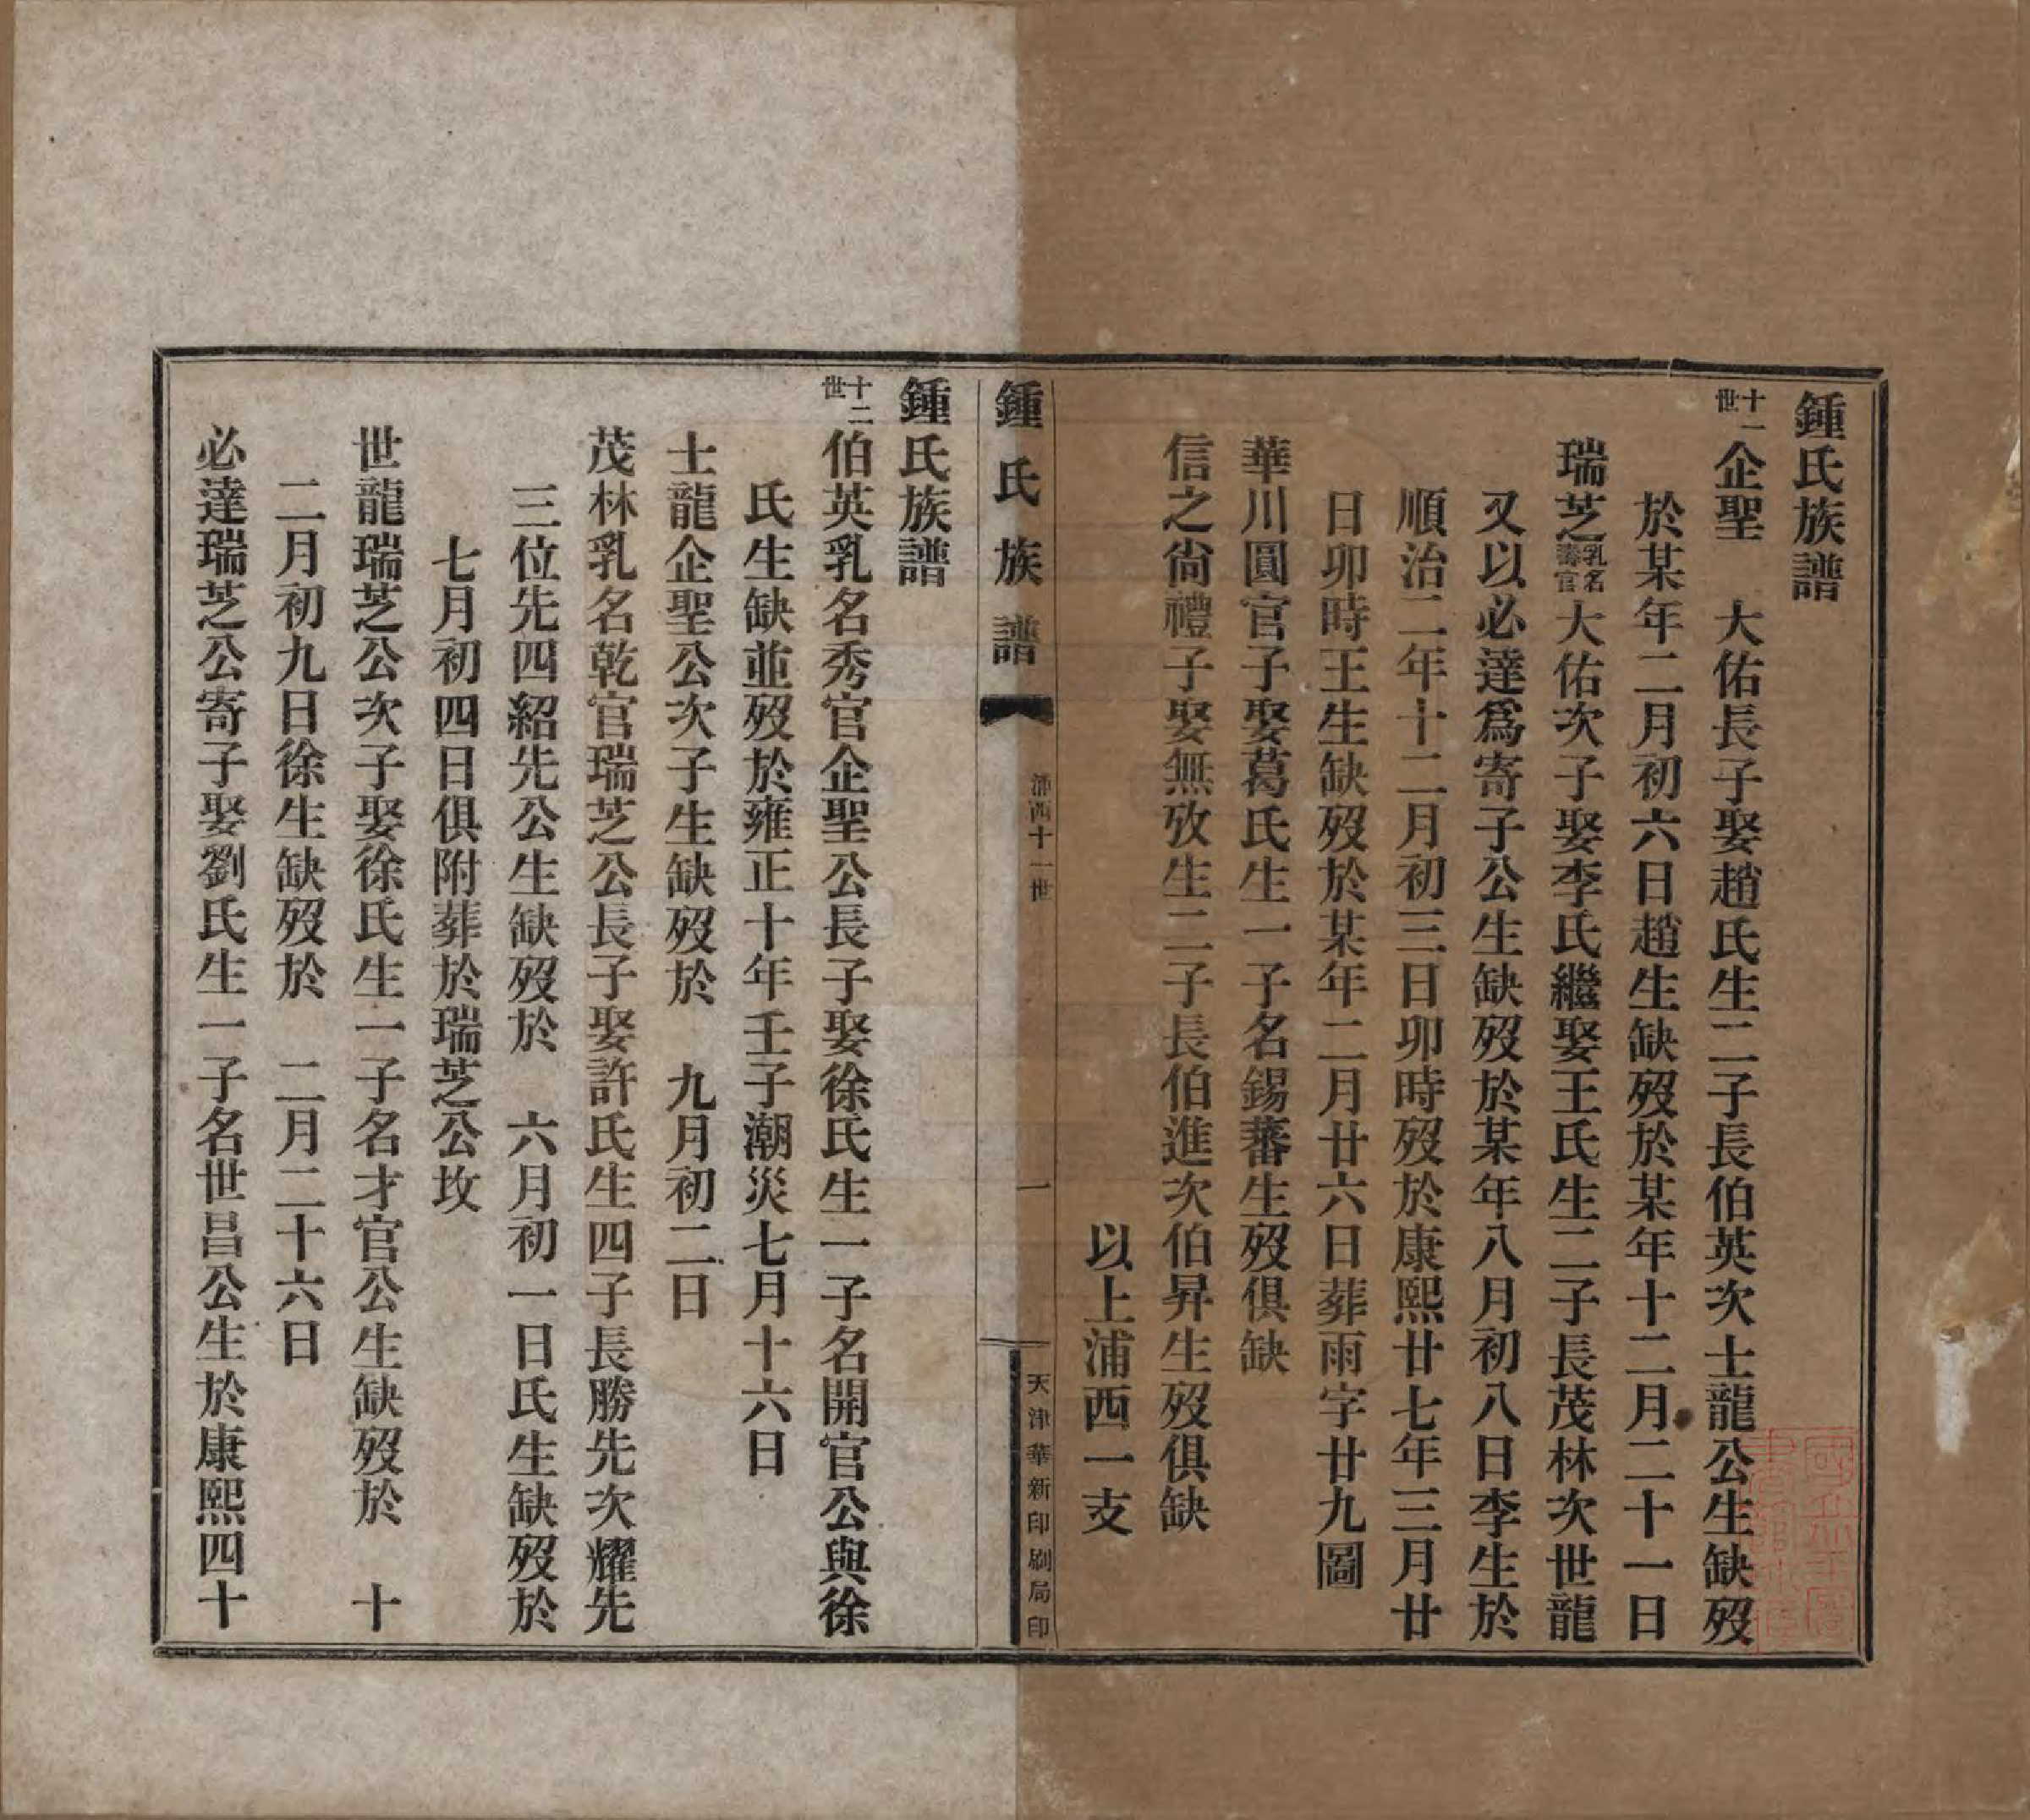 鍾氏族譜
十一世企聖　大佑長子娶趙氏生二子長伯英次士龍公生缺歿
於某年二月初六日趙生缺歿於某年十二月二十一日
瑞芝乳名壽官大佑次子娶李氏繼娶王氏生二子長茂林次世龍
又以必達爲寄子公生缺歿於某年八月初八日李生於
順治二年十二月初三日卯時歿於康熙廿七年三月廿
日卯時王生缺歿於某年二月廿六日葬雨字廿九圖
華川圓官子娶葛氏生一子名錫蕃生歿俱缺
信之尙禮子娶無攷生二子長伯進次伯昇生歿俱缺
以上浦西一支
鍾氏族譜
浦西十一世
一
天津華新印刷局印
鍾氏族譜
十二世伯英乳名秀官企聖公長子娶徐氏生一子名開官公與徐
氏生缺並歿於雍正十年壬子潮災七月十六日
士龍企聖公次子生缺歿於　九月初二日
茂林乳名乾官瑞芝公長子娶許氏生四子長勝先次耀先
三位先四紹先公生缺歿於　六月初一日氏生缺歿於
七月初四日俱附葬於瑞芝公坟
世龍瑞芝公次子娶徐氏生一子名才官公生缺歿於　十
二月初九日徐生缺歿於　二月二十六日
必達瑞芝公寄子娶劉氏生一子名世昌公生於康熙四十